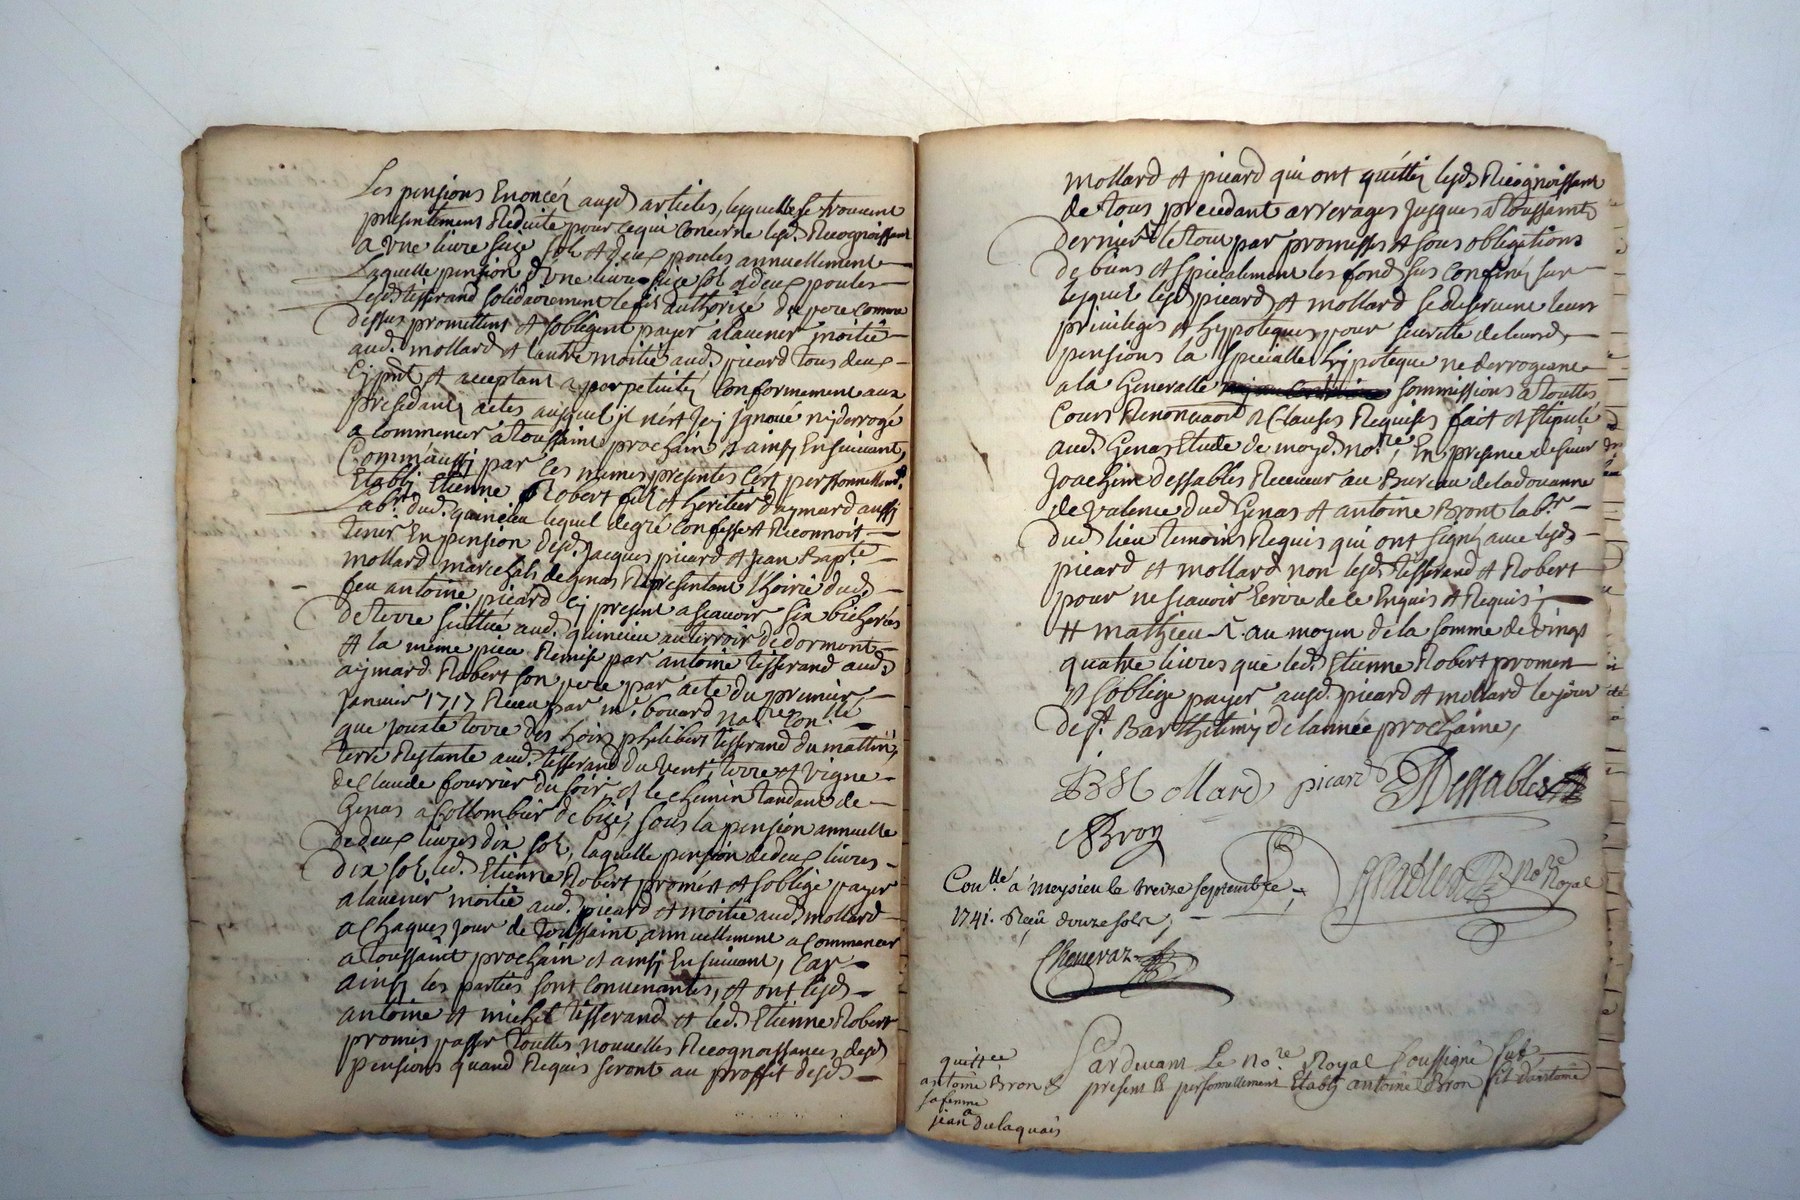 Les pensions Enoncéz ausd. articles, lesquelles se trouvent
presentement Reduite pour ce qui concerne lesd. Recognoissant
a une livre seize sol et deux poules annuellement
Laquelle pension d'une livre seize sol et deux poules
Lesd. tisserand solidairement le fis authorizé du pere comme
dessus promettent et s'obligent payer à l'avenir moitié
aud. mollard et l'autre moitié aud. picard tous deux
cy pnt et aceptant a perpetuité conformement aux
presedant actes ausquel il n'est icy innové ny derrogé
a commencer a toussaint prochain et ainsy En suivant,
Comm'aussy par ces mêmes presentes c'est personnellemt.
Etably Etienne Robert fils et heritier d'aymard aussy
Labr. dud. quincieu lequel de gré confesse et Reconnoit
tenir En pension desd. Jacques picard et Jean Bapte.
mollard marechals de genas Representant l'hoirie dud.
feu antoine picard cy present a scavoir six bicherés
de terre scittué aud. quincieu au terroir de dormont
et la même piece Remise par antoine tisserand aud.
aymard Robert son pere par acte du premier
Janvier 1717 Receu par me. bouard nore. Conllé
que jouxte terre des hoirs philibert tisserand du mattin,
terre Restante aud. tisserand du vent, terre et vigne
de Claude fourrier du soir et le chemin tandant de
Genas a Collombier de bize, sous la pension annuelle
de deux livres dix sols, laquelle pension de deux livres
dix sol led. Etienne Robert promet et s'oblige payer
a l'avenir moitié aud. picard et moitié aud. mollard
a chaques jour de toussaint annuellement a commencer
a toussaint prochain et ainsy En suivant, Car
ainsy les parties sont convenantes, et ont lesd.
antoine et michel tisserand et led. Etienne Robert
promis passer touttes nouvelles Recognoissances desd.
pensions quand Requis seront au proffit desd.
mollard et picard qui ont quitté lesd. Recognoissant
de tous precedant arrerages jusques a toussaint
dernier le tout par promesses et sous obligations
de biens et specialement les fond sus confinés sur
lesquel lesd. picard et mollard se reservent leurs
privileges et hypoteques pour seureté de leurd.
pensions la specialle hypoteque ne derrogeant
a la Generalle sommissions a touttes
Cours Renonciaon. et Clauses Requises fait et stipulé
aud. Genas Etude de moyd. nore., En presence de sieur
Joachim dessables Receveur au Bureau de la douanne
de valence dud. Genas et antoine Bront labr.
dud. lieu temoins Requis qui ont signé avec lesd.
picard et mollard non lesd. tisserand et Robert
pour ne scavoir Ecrire de ce Enquis et Requis
# mathieu au moyen de la somme de vingt
quatre livres que led. Etienne Robert promet
et s'oblige payer ausd. picard et mollard le jour
de st. Barthelemy de l'année prochaine,
JB Mollard picard Dessables
ABron
nore Royal
Conllé a meysieu le treize septembre
1741. Reçu douze sols
Cheneraz
quittce
antoine Bron &
sa femme
a
jean delaquais
Pardevant Le nore Royal soussigné fut
present & personnellement Etably antoine Bron fil d'antoine